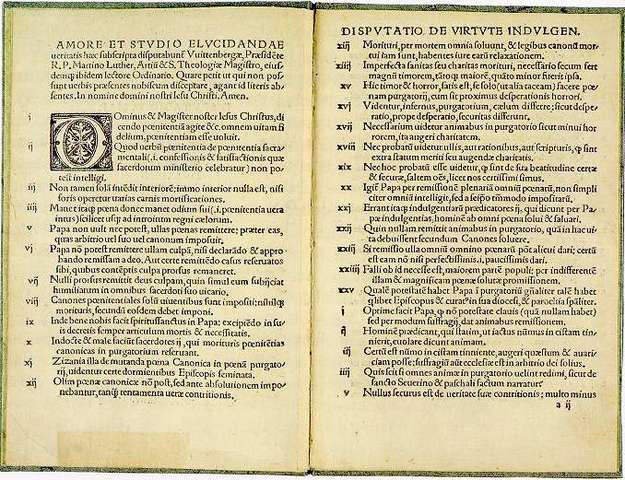 AMORE ET STVDIO ELVCIDANDAE
ueritatis hæc subscripta disputabunť Vuittenbergæ, Præsidẽte
R. P. Martino Luther, Artiũ & S. Theologiæ Magistro, eius-
demq́ ibidem lectore Ordinatio. Quare petit ut qui non pos-
sunt uerbis præsentes nobiscum disceptare, agant id literis ab-
sentes. In nomine domini nostri Iesu Christi. Amen.
i DOminus & Magister noster Iesus Christus, di-
cendo pœnitentiã agite &c̃, omnem uitam fi
delium, pœnitentiam esse uoluit.
ij Quod uerbũ pœnitentia de pœnitentia sacra-
mentali (.i. confessionis & satisfactionis quæ
sacerdotum ministerio celebratur) non po-
test intelligi.
iij Non tamen solã intẽdit interiorẽ; immo interior nulla est, nisi
foris operetur uarias carnis mortificationes.
iiij Manet itaq́ pœna donec manet odium sui (.i. pœnitentia uera
intus) scilicet usq́ ad introitum regni cælorum.
v Papa non uult nec potest, ullas pœnas remittere; præter eas,
quas arbitrio uel suo uel canonum imposuit.
vj Papa nõ potest remittere ullam culpã, nisi declarãdo & appro-
bando remissam a deo. Aut certe remittẽdo casus reseruatos
sibi, quibus contẽptis culpa prorsus remaneret.
vij Nulli prorsus remittit deus culpam, quin simul eum subijciat
humiliatum in omnibus sacerdoti suo uicario.
viij Canones pœnitentiales solũ uiuentibus sunt impositi; nihilq́
morituris, secundũ eosdem debet imponi.
ix Inde bene nobis facit spiritussanctus in Papa: excipiẽdo in su-
is decretis semper articulum mortis & necessitatis.
x Indocte & male faciũt sacerdotes ij, qui morituris pœnitẽtias
canonicas in purgatorium reseruant.
xj Zizania illa de mutanda pœna Canonica in pœnã purgato-
rij, uidentur certe dormientibus Episcopis seminata.
xij Olim pœnæ canonicæ nõ post, sed ante absolutionem impo-
nebantur, tanq̃ tentamenta ueræ contritionis.
DISPVTATIO DE VIRTVTE INDVLGEN.
xiij Morituri, per mortem omnia soluunt, & legibus canonũ mor-
tui iam sunt, habentes iure earũ relaxationem.
xiiij Imperfecta sanitas seu charitas morituri, necessario secum fert
magnũ timorem, tãtoq́ maiorẽ, quãto minor fuerit ipsa.
xv Hic timor & horror, satis est, se solo (ut alia taceam) facere pœ-
nam purgatorij, cum sit proximus desperationis horrori.
xvj Videntur, infernus, purgatorium, cælum differre; sicut despe-
ratio, prope desperatio, securitas differunt.
xvij Necessarium uidetur animabus in purgatorio sicut minui hor
rorem, ita augeri charitatem.
xviij Nec probatũ uidetur ullis, aut rationibus, aut scripturis, q̃ sint
extra statum meriti seu augendæ charitatis.
xix Nec hoc probatũ esse uidetur, q̃ sint de sua beatitudine certæ
& securæ, saltem oẽs, licet nos certissimi simus.
xx Igiť Papa per remissionẽ plenariã omniũ pœnarũ, non simpli
citer omniũ intelligit, sed a seipso tm̃modo impositarũ.
xxj Errant itaq́ indulgentiarũ prædicatores ij, qui dicunt per Pa-
pæ indulgentias, hominẽ ab omni pœna solui & saluari.
xxij Quin nullam remittit animabus in purgatorio, quã in hac ui-
ta debuissent secundum Canones soluere.
xxiij Si remissio ulla omniũ omnino pœnarũ põt alicui dari; certũ
est eam nõ nisi perfectissimis .i. paucissimis dari.
xxiiij Falli ob id necesse est, maiorem partẽ populi; per indifferentẽ
illam & magnificam pœnæ solutæ promissionem.
xxv Qualẽ potestatẽ habet Papa in purgatoriũ gñaliter talẽ habet
q̃libet Episcopus & curatus in sua diocesi, & parochia spãliter.
i Optime facit Papa, q̃ nõ potestate clauis (quã nullam habet)
sed per modum suffragij, dat animabus remissionem.
ij Hominẽ prædicant, qui statim, ut iactus nũmus in cistam tin-
nierit, euolare dicunt animam.
iij Certũ est nũmo in cistam tinniente, augeri quæstum & auari-
ciam posse; suffragiũ aũt ecclesiæ est in arbitrio dei solius.
iiij Quis scit si omnes animæ in purgatorio uelint redimi, sicut de
sancto Seuerino & paschali factum narratur.
v Nullus securus est de ueritate suæ contritionis; multo minus
a ij